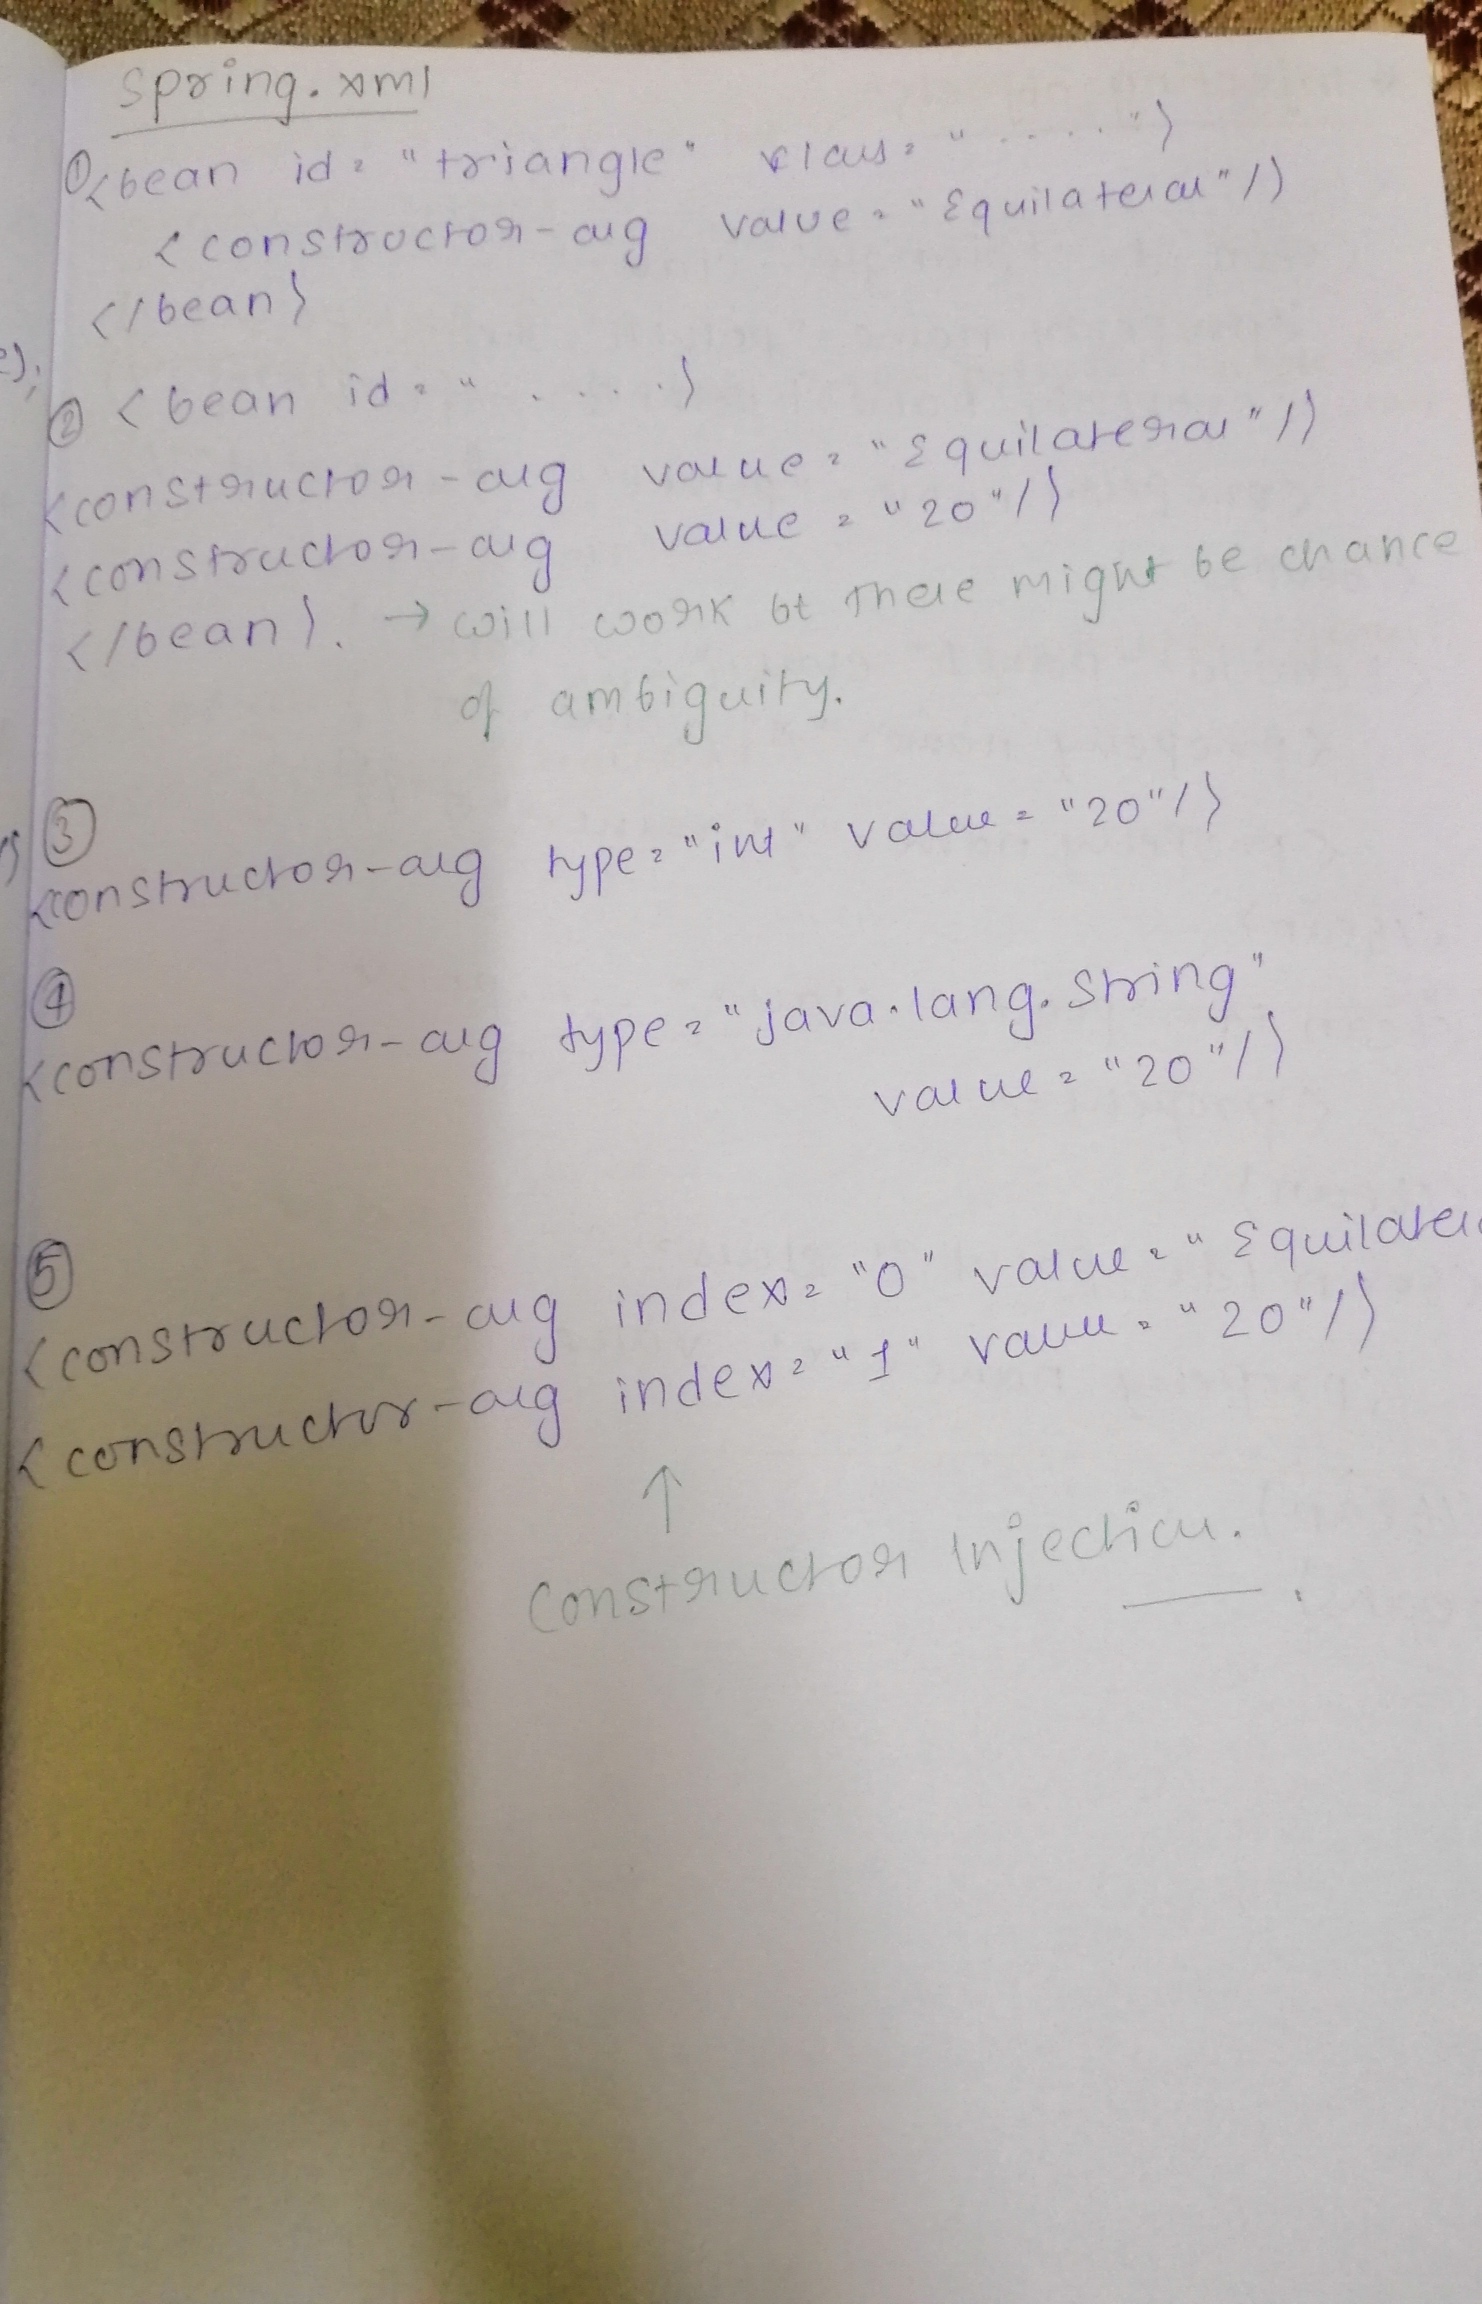 spring.xml
① <bean id="triangle" class="....">
<constructor-arg value="Equilateral"/>
</bean>
② <bean id=".....>
<constructor-arg value="Equilateral"/>
<constructor-arg value="20"/>
</bean>. → will work bt there might be chance
of ambiguity.
③
<constructor-arg type="int" value="20"/>
④
<constructor-arg type="java.lang.String"
value="20"/>
⑤
<constructor-arg index="0" value="Equilater
<constructor-arg index="1" value="20"/>
↑
Constructor Injection.